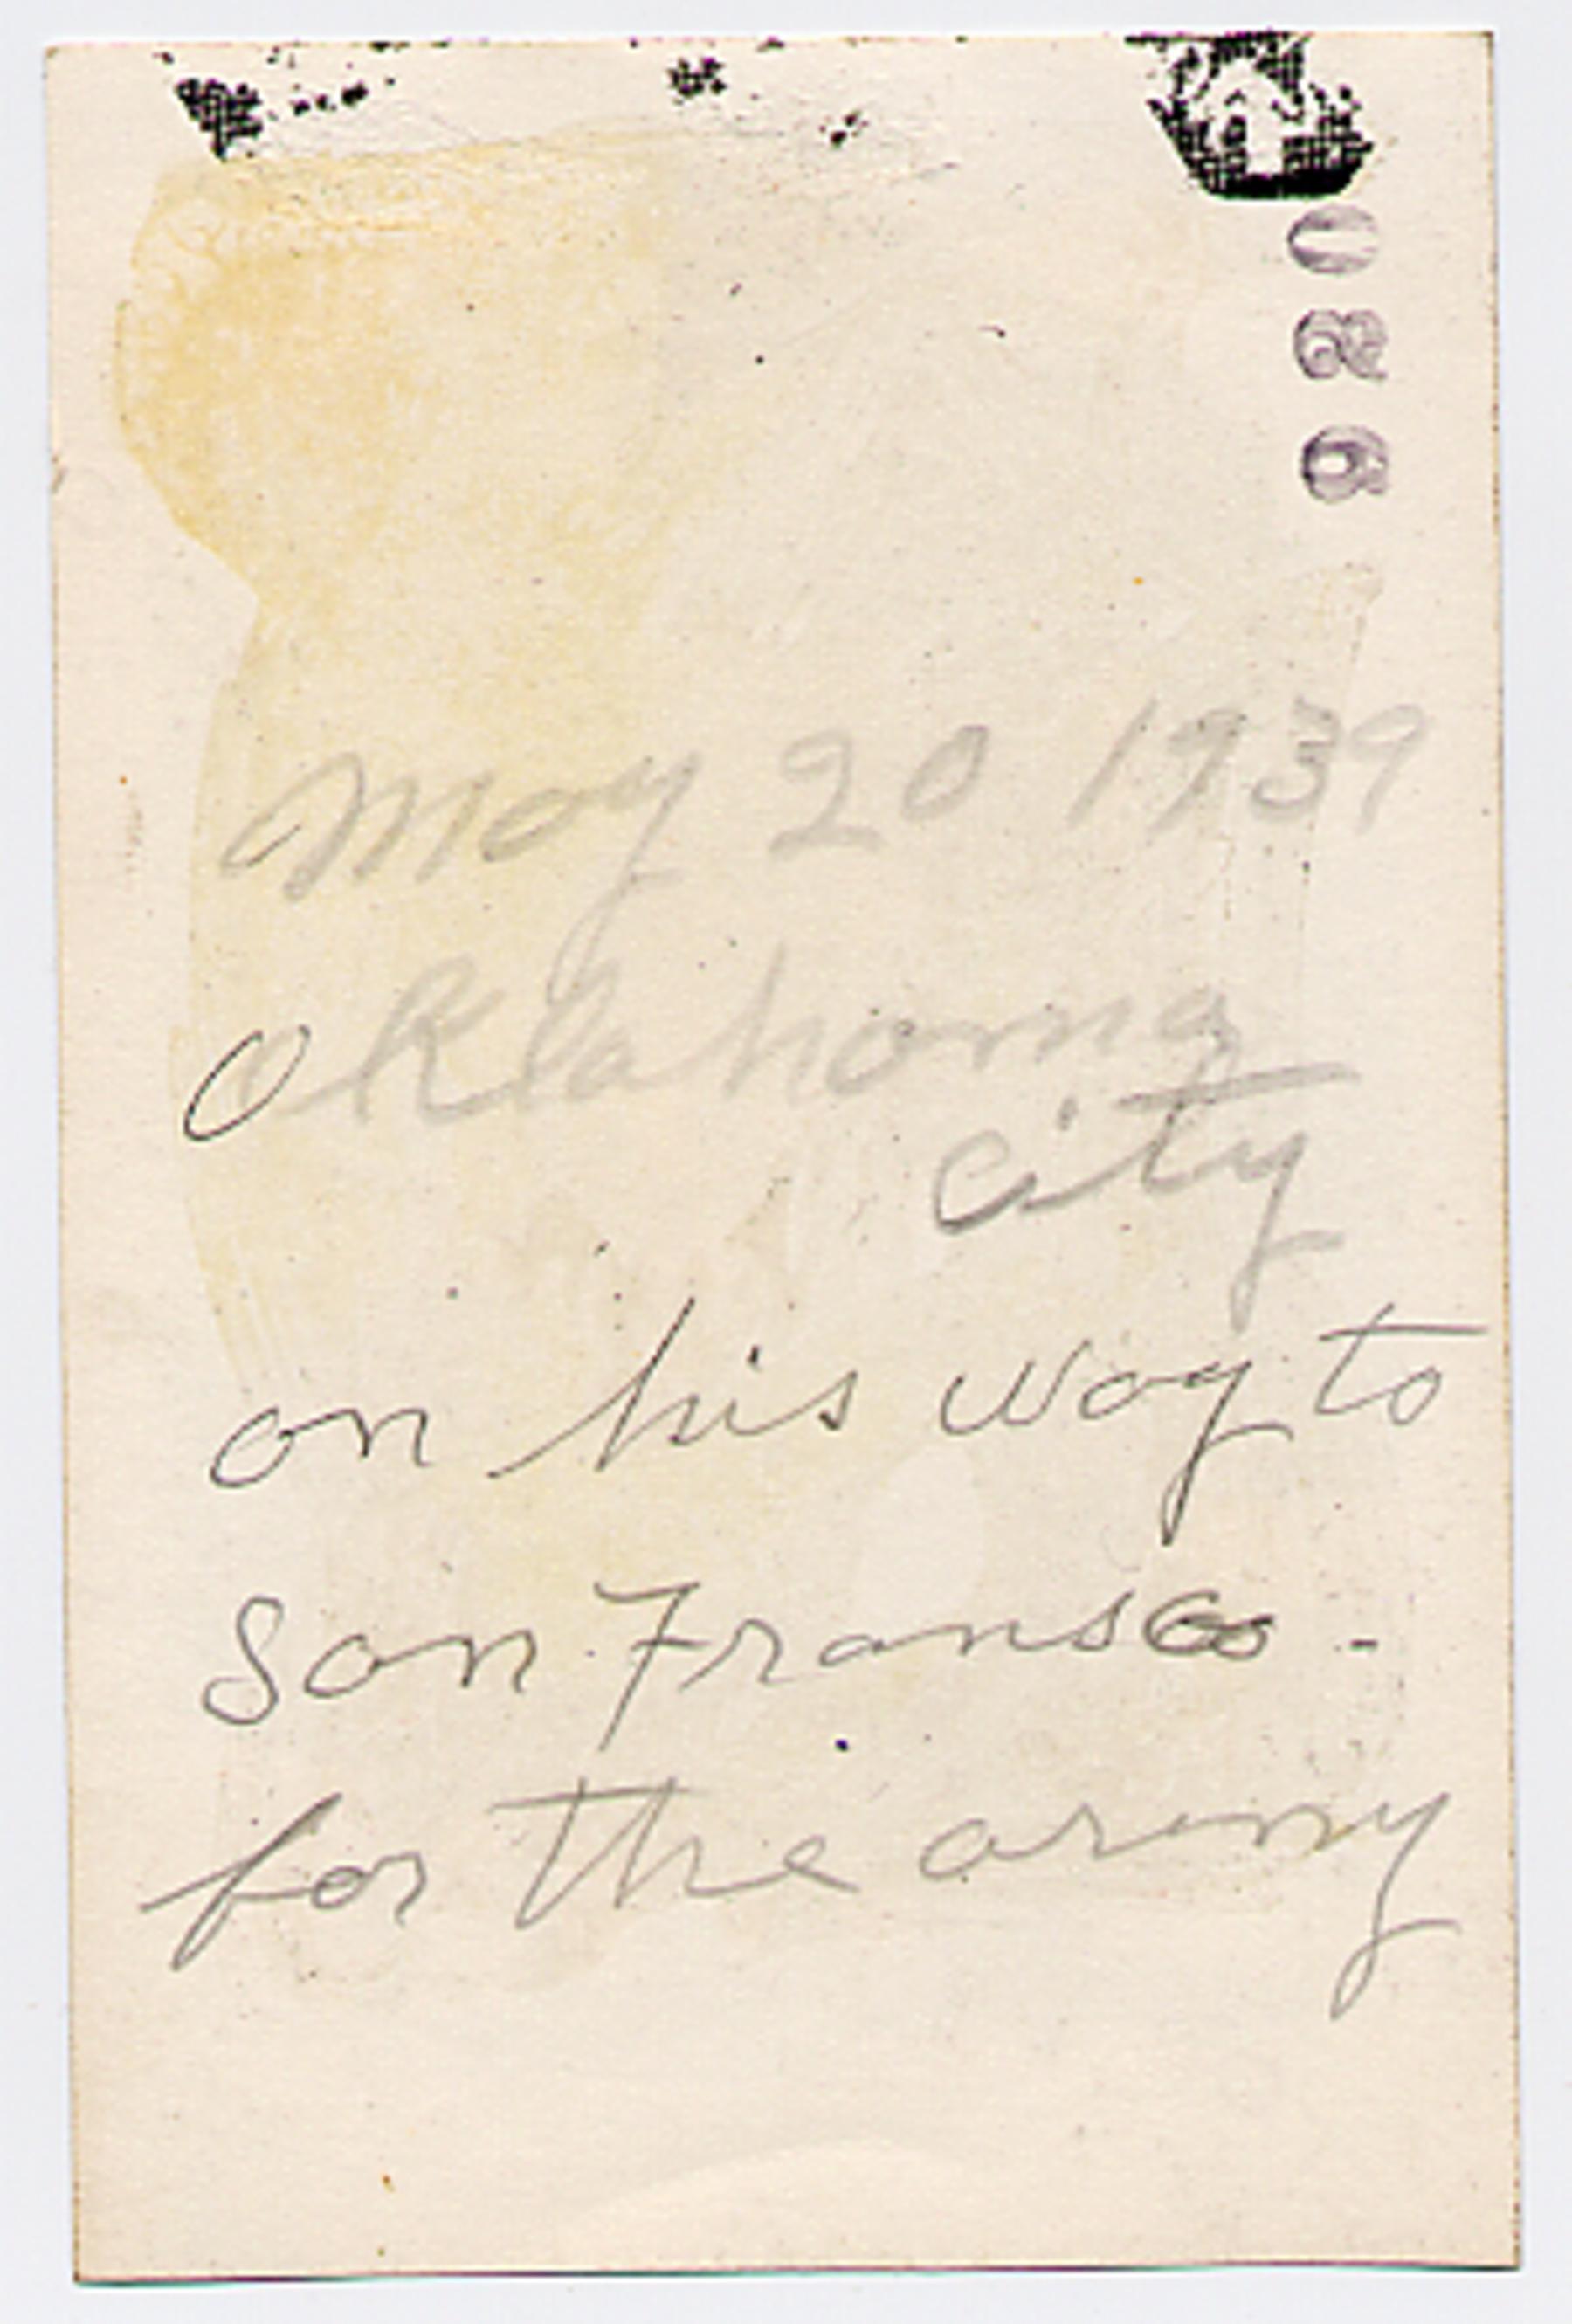 May 20 1939
Oklahoma
city
on his way to
San Fransco -
for the army